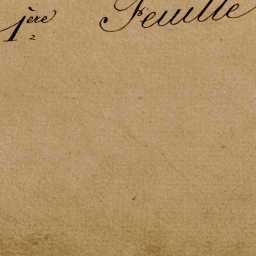 1ère Feuille
2